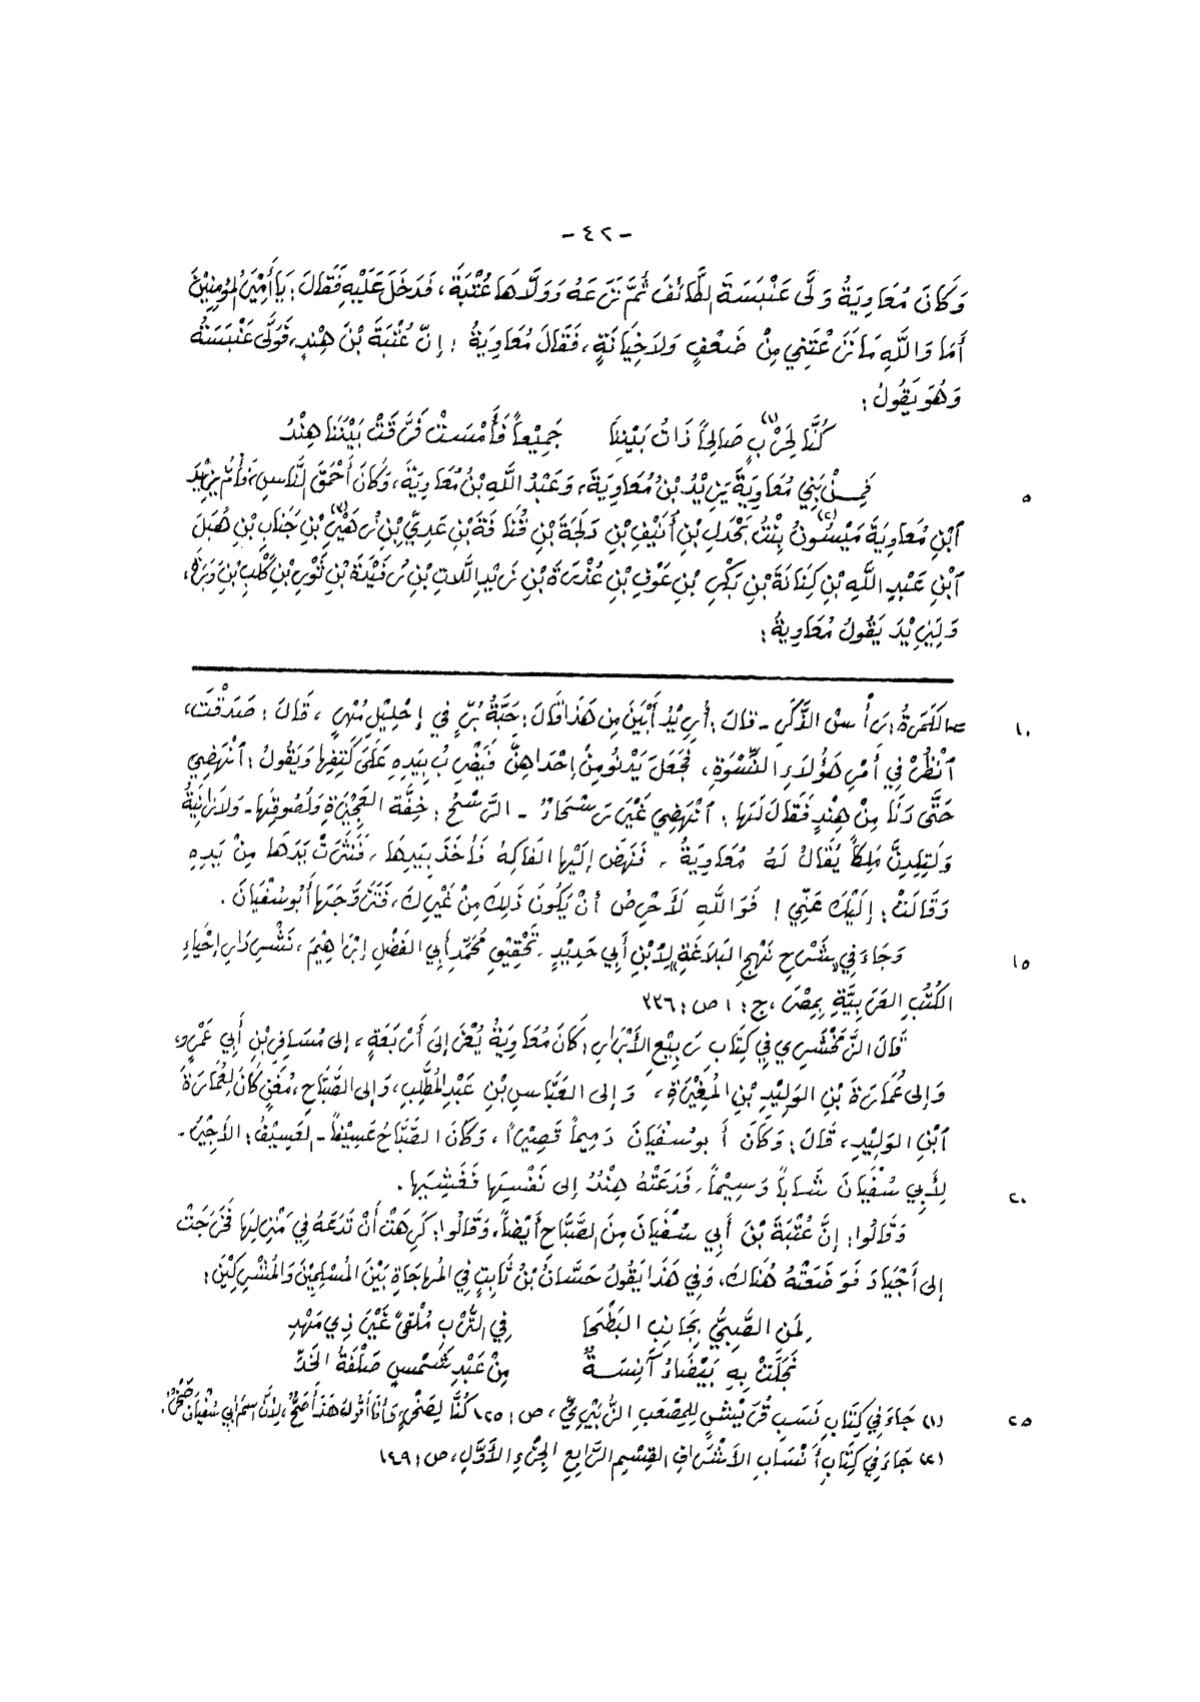 - ٤٢ -
وَكَانَ مُعَاوِيَةُ وَلَّى عَنْبَسَةَ الطَّائِفَ ثُمَّ نَزَعَهُ وَوَلَّاهَا عُتْبَةَ، فَدَخَلَ عَلَيْهِ فَقَالَ: يَا أَمِيْرَ المُؤْمِنِيْنَ
أَمَا وَاللَّهِ مَا نَزَعْتَنِي مِنْ ضَعْفٍ وَلاَ خِيَانَةٍ، فَقَالَ مُعَاوِيَةُ: إِنَّ عُتْبَةَ بْنَ هِنْدٍ، فَوَلَّى عَنْبَسَةُ
وَهُوَ يَقُولُ:
كُنَّا لِحَرْبٍ(١) صَالِحاً ذَاتُ بَيْنِنَا جَمِيْعاً فَأَمْسَتْ فَرَّقَتْ بَيْنَنَا هِنْدُ
٥ فَمِنْ بَنِي مُعَاوِيَةَ يَزِيْدُ بْنُ مُعَاوِيَةَ، وَعَبْدُ اللَّهِ بْنُ مُعَاوِيَةَ، وَكَانَ أَحْمَقَ النَّاسِ، فَأُمُّ يَزِيْدَ
ٱبْنِ مُعَاوِيَةَ مَيْسُونُ(٢) بِنْتُ بَحْدَلِ بْنِ أُنَيْفِ بْنِ دَلَجَةَ بْنِ قُنَافَةَ بْنِ عَدِيِّ بْنِ زُهَيْرِ بْنِ جَنَابِ بْنِ هُبَلَ
ٱبْنِ عَبْدِ اللَّهِ بْنِ كِنَانَةَ بْنِ بَكْرِ بْنِ عَوْفِ بْنِ عُذْرَةَ بْنِ زَيْدِ اللَّاتِ بْنِ رُفَيْدَةَ بْنِ ثَوْرِ بْنِ كَلْبِ بْنِ وَبَرَةَ،
وَلِيَزِيْدَ يَقُولُ مُعَاوِيَةُ:
١٠ = الكَمَرَةُ: رَأْسُ الذَّكَرِ - قَالَ: أُرِيْدُ أَبْيَنَ مِنْ هَذَا قَالَ: حَبَّةُ بُرٍّ فِي إِحْلِيْلِ مُهْرٍ، قَالَ: صَدَقْتَ،
ٱنْظُرْ فِي أَمْرِ هَؤُلَاءِ النِّسْوَةِ، فَجَعَلَ يَدْنُو مِنْ إِحْدَاهِنَّ فَيَضْرِبُ بِيَدِهِ عَلَى كَتِفِهَا وَيَقُولُ: ٱنْهَضِي
حَتَّى دَنَا مِنْ هِنْدٍ فَقَالَ لَهَا: ٱنْهَضِي غَيْرَ رَسْحَاءَ - الرَّسْحُ: خِفَّة العَجِيْزَةِ وَلُصُوقِهَا - وَلاَ زَانِيَةٍ
وَلَتَلِدِنَّ مَلِكاً يُقَالُ لَهُ مُعَاوِيَةُ، فَنَهَضَ إِلَيْهَا الفَاكِهُ فَأَخَذَ بِيَدِهَا، فَنَثَرَتْ يَدَهَا مِنْ يَدِهِ
وَقَالَتْ: إِلَيْكَ عَنِّي! فَوَاللَّهِ لَأَحْرِصُ أنْ يَكُونَ ذَلِكَ مِنْ غَيْرِكَ، فَتَزَوَّجَهَا أَبُو سُفْيَانَ.
١٥ وَجَاءَ فِي "شَرْحِ نَهْجِ البَلَاغَةِ" لِابْنِ أَبِي حَدِيْدٍ. تَحْقِيْقِ مُحَمَّدِ أَبِي الفَضْلِ إِبْرَاهِيْمَ، نَشْرِ دَارِ إِحْيَاءِ
الكُتُبِ العَرَبِيَّةِ بِمِصْرَ، ج: ١ ص: ٣٣٦
قَالَ الزَّمَخْشَرِي فِي كِتَابِ رَبِيْعِ الأَبْرَارِ: كَانَ مُعَاوِيَةُ يُعْزَى إلَى أَرْبَعَةٍ، إلى مُسَافِرِ بْنِ أَبِي عَمْرٍو،
وَإلى عُمَارَةَ بْنِ الوَلِيْدِ بْنِ المُغِيْرَةِ، وَإلى العَبَّاسِ بْنِ عَبْدِ المُطَّلِبِ، وَإلى الصَّبَّاحِ، مُغَنٍّ كَانَ لِعُمَارَةَ
ٱبْنِ الوَلِيْدِ، قَالَ: وَكَانَ أَبو سُفْيَانَ دَمِيماً قَصِيْراً، وَكَانَ الصَّبَّاحُ عَسِيْفاً - العَسِيْفُ: الأَجِيْرُ -
٢٠ لِأَبِي سُفْيَانَ شَاباً وَسِيْماً، فَدَعَتْهُ هِنْدُ إلى نَفْسِهَا فَغَشِيَهَا.
وَقَالُوا: إنَّ عُتْبَةَ بْنَ أَبِي سُفْيَانَ مِنَ الصَّبَّاحِ أَيْضاً، وَقَالُوا: كَرِهَتْ أَنْ تَدَعَهُ فِي مَنْزِلِهَا فَخَرَجَتْ
إلى أَجْيَادَ فَوَضَعَتْهُ هُنَاكَ، وَفِي هَذَا يَقُولُ حَسَّانُ بْنُ ثَابِتٍ فِي المُهَاجَاةِ بَيْنَ المُسْلِمِيْنَ وَالمُشْرِكِيْنَ:
لِمَنِ الصَّبِيُّ بِجَانِبِ البَطْحَا فِي التُّرْبِ مُلْقىً غَيْرَ ذِي مَهْدِ
نَجَلَتْ بِهِ بَيْضَاءُ آنِسَةٌ مِنْ عَبْدِ شَمْسٍ صَلْتَةُ الخَدِّ
٢٥ (١) جَاءَ فِي كِتَابِ نَسَبِ قُرَيْشٍ لِلمِصْعَبِ الزُّبَيْرِيِّ، ص: ١٢٥ كُنَّا لِصَخْرٍ وَأَنَا أَقُولُ هَذَا أَصَحُّ، لِأَنَّ اسْمَ أَبِي سُفْيَانَ صَخْرٌ.
(٢) جَاءَ فِي كِتَابِ أَنْسَابِ الأَشْرَافِ القِسْمِ الرَّابِعِ الجُزْءِ الأَوَّلِ، ص: ١٤٩